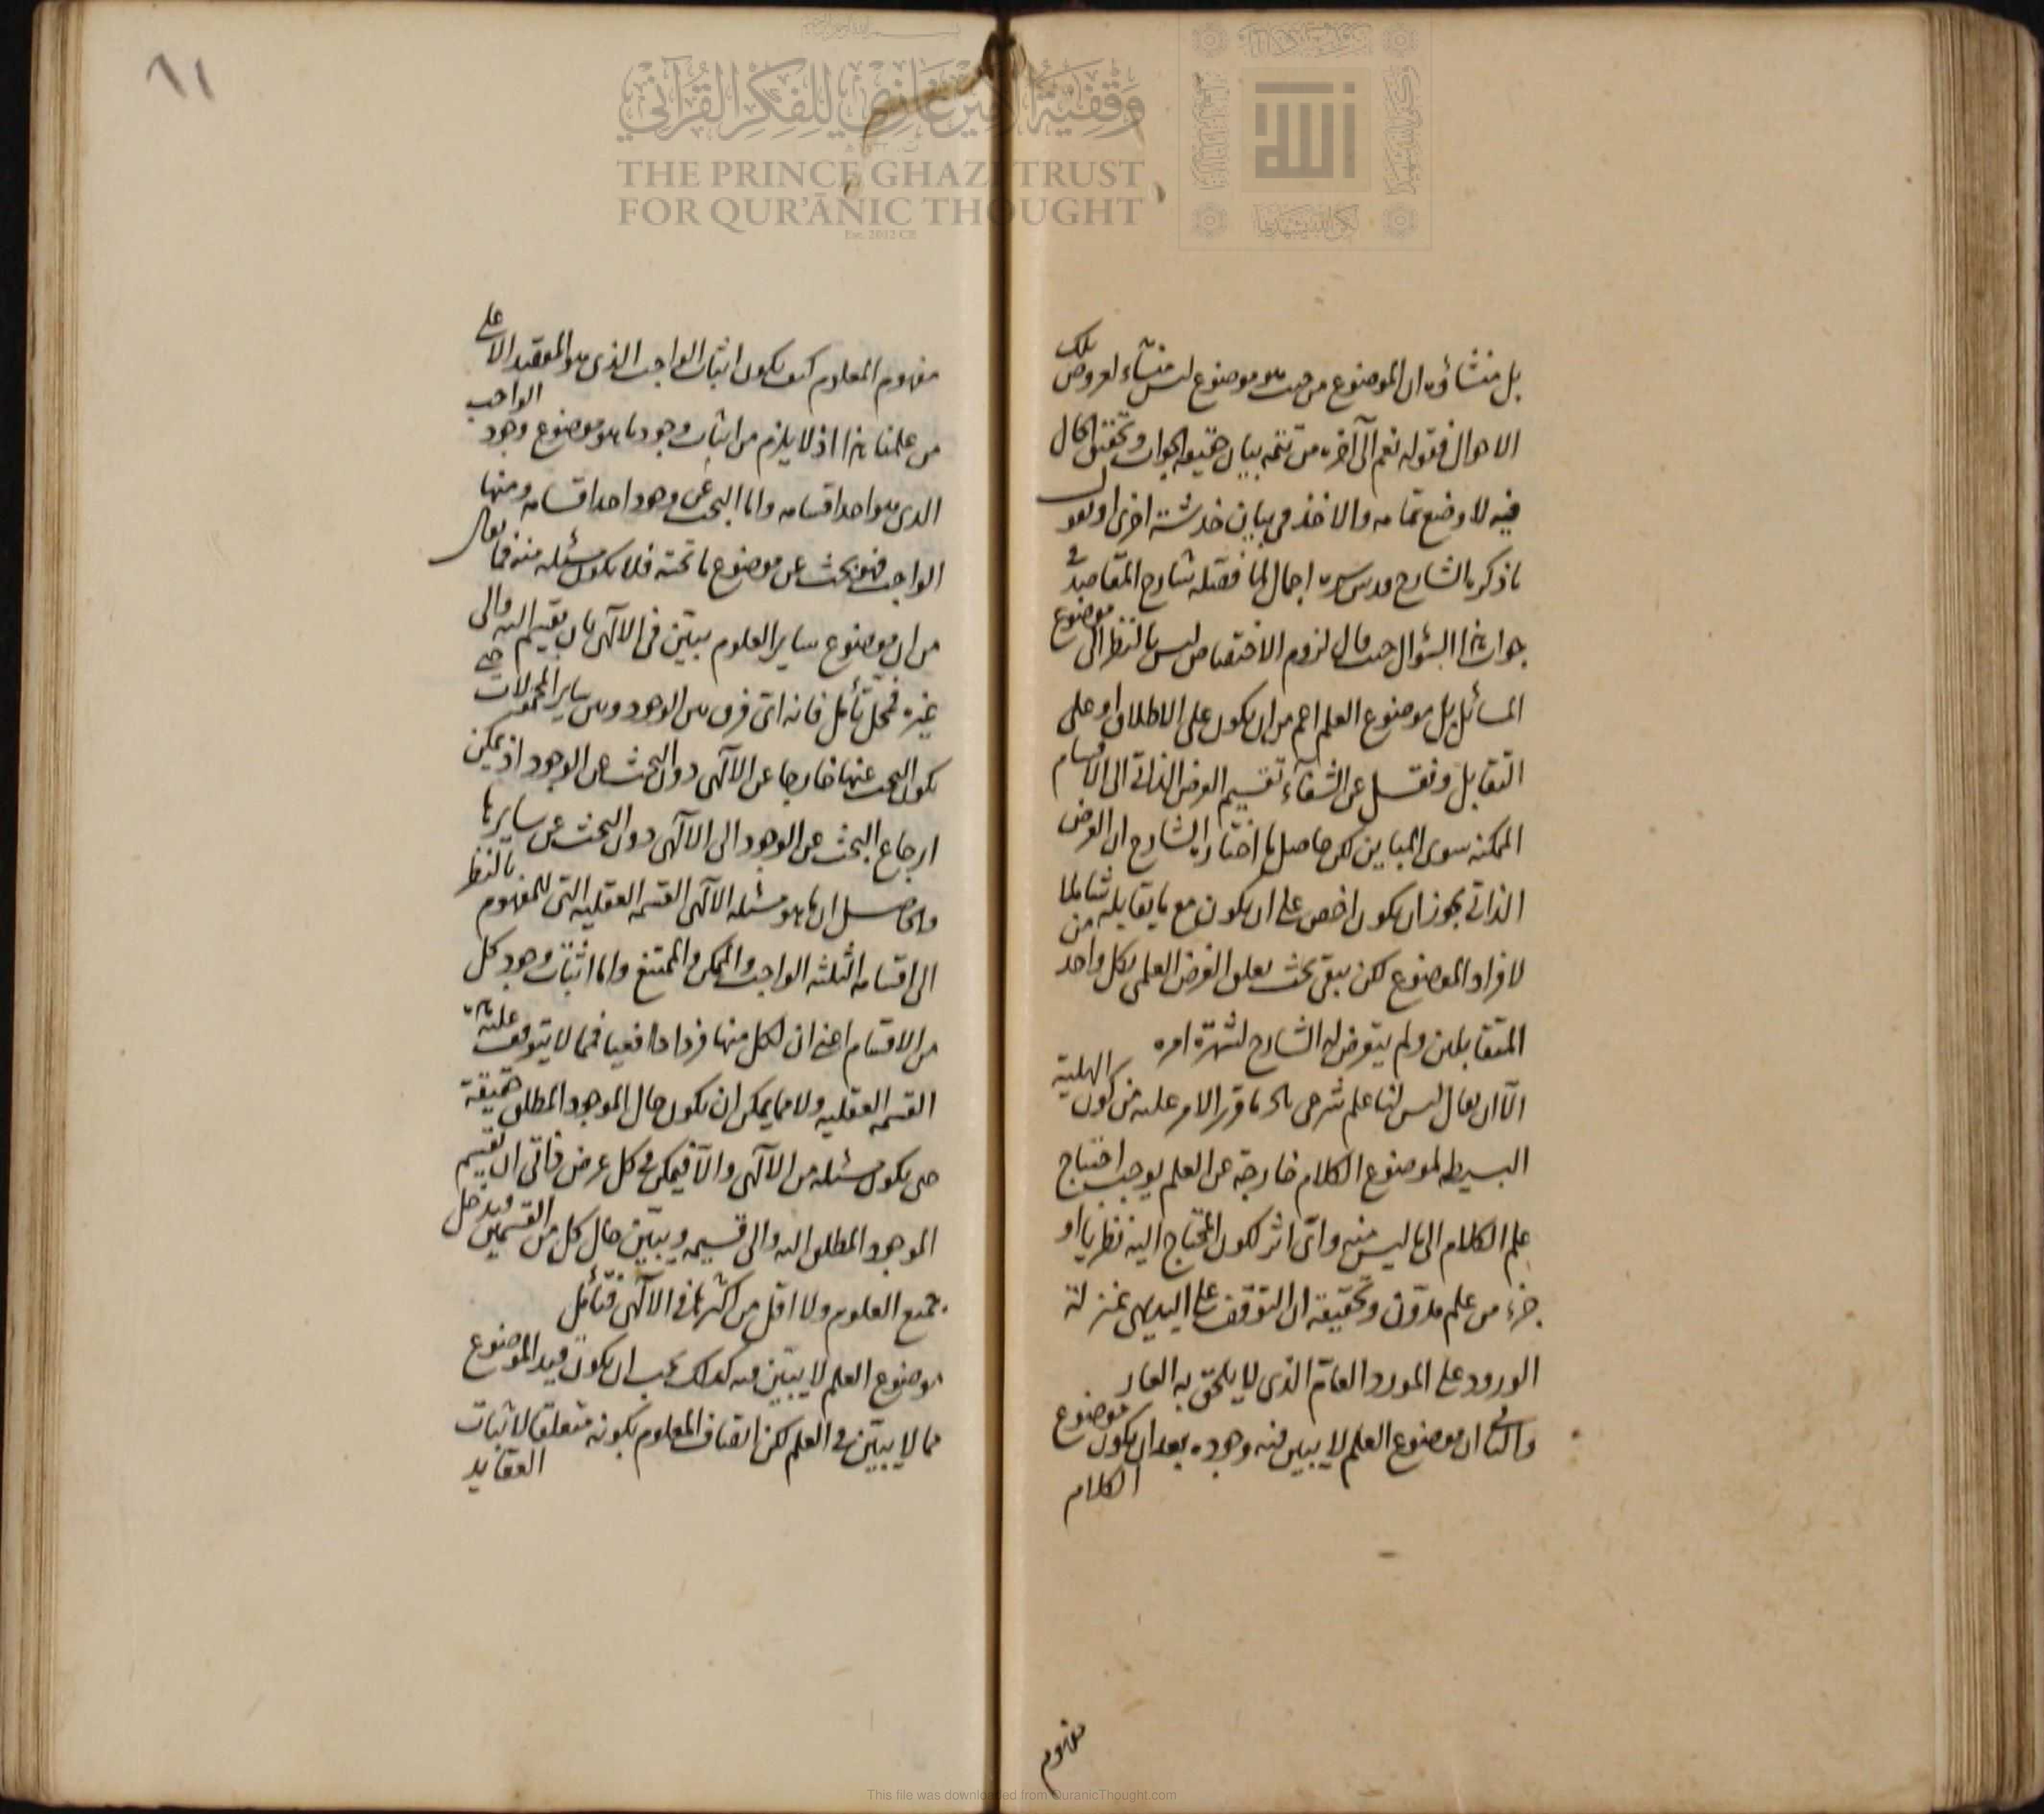 بل منشاؤه ان الموضوع من حيث هو موضوع ليس منشاء لعروض تلك
الاحوال فقوله نعم الى آخره من تتمه بيان حقيقه الجواب وتحقيق الحال
فيه لا وضع تمامه والاخذ في بيان خدشة اخرى او نقول
ما ذكره الشارح قدس سره اجمال لما فصله شارح المقاصد في
جواب هذا السؤال حيث قال لزوم الاختصاص ليس بالنظر الى موضوع
المسائل بل موضوع العلم اعم من ان يكون على الاطلاق او على
التقابل ونقل عن الشفاء تقسيم العرض الذاتي الى الاقسام
الممكنه سوى المباين لكن حاصل ما اختاره الشارح ان العرض
الذاتي يجوز ان يكون اخص على ان يكون مع ما يقابله شاملا
لافراد الموضوع لكن يبقى بحث تعلق الغرض العلمي بكل واحد من
المتقابلين ولم يتعرض له الشارح لشهرة امره
الا ان يقال ليس لنا علم شرعي الخ ما قرر الامر عليه من كون الهلية
البسيطه لموضوع الكلام خارجة عن العلم يوجب احتياج
علم الكلام الى ما ليس منه واي اثر لكون المحتاج اليه نظريا او
جزء من علم مدون وتحقيقه ان التوقف على البديهي بمنزلة
الورود على المورد العام الذي لا يلحق به العار
والثاني ان موضوع العلم لا يبين فيه وجوده بعد ان يكون موضوع
الكلام
مفهوم
٨١
مفهوم المعلوم كيف يكون اثبات الواجب الذي هو المقصد الاعلى
من علمنا هذا اذ لا يلزم من اثبات وجود ما هو موضوع وجود الواجب
الذي هو احد اقسامه واما البحث عن وجود احد اقسامه ومنها
الواجب فهو بحث عن موضوع ما تحته فلا يكون مسئله منه فما يقال
من ان موضوع ساير العلوم يبين في الالهي بان يقسم اليه والى
غيره فمحل تأمل فانه اي فرق بين الوجود وبين ساير المحمولات حتى
يكون البحث عنها خارجا عن الالهي دون البحث عن الوجود اذ يمكن
ارجاع البحث عن الوجود الى الالهي دون البحث عن سايرها
والحاصل ان ما هو مسئله الالهي القسمه العقليه التي للمفهوم بالنظر
الى اقسامه الثلثه الواجب والممكن والممتنع واما اثبات وجود كل
من الاقسام اعني ان لكل منها فردا واقعيا فمما لا يتوقف عليه
القسمه العقليه ولا مما يمكن ان يكون حال الموجود المطلق حقيقة
حتى يكون مسئله من الالهي والا فيمكن في كل عرض ذاتي ان يقسم
الموجود المطلق اليه والى قسيمه ويبين حال كل من القسمين فيدخل
جميع العلوم ولا اقل من اكثرها في الالهي فتأمل
موضوع العلم لا يبين فيه كذلك يجب ان يكون قيد الموضوع
مما لا يبين في العلم لكن اتصاف المعلوم بكونه متعلقا لاثبات
العقايد
وقفية الأمير غازي للفكر القرآني
THE PRINCE GHAZI TRUST
FOR QUR'ĀNIC THOUGHT
Est. 2012 CE
الله
This file was downloaded from QuranicThought.com